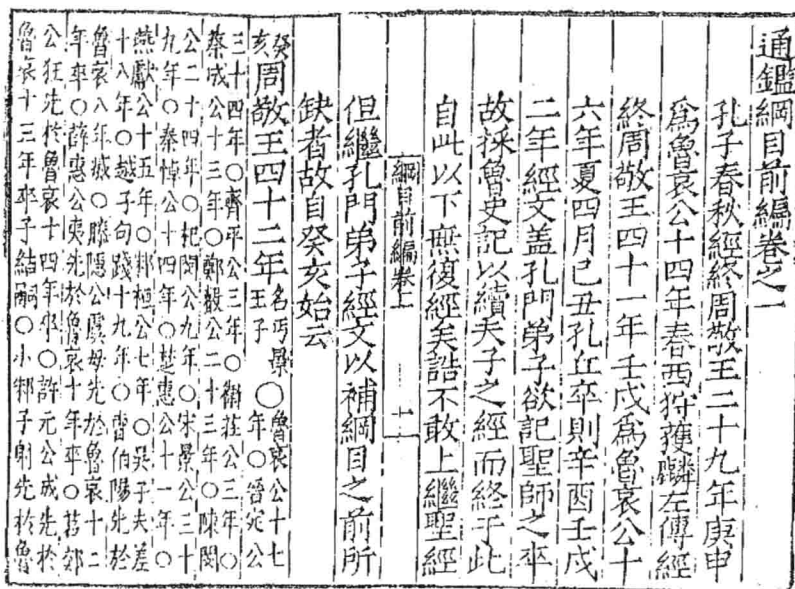 通鑑綱目前編卷之一
孔子春秋經終周敬王三十九年庚申
爲魯哀公十四年春西狩獲麟左傳經
終周敬王四十一年壬戌爲魯哀公十
六年夏四月己丑孔丘卒則辛酉壬戌
二年經文盖孔門弟子欲記聖師之卒
故採魯史記以續夫子之經而終于此
自此以下無復經矣誥不敢上繼聖經
綱目前編卷上
但繼孔門弟子經文以補綱目之前所
缺者故自癸亥始云
癸亥周敬王四十二年名丐景王子〇魯哀公十七年〇晉定公
三十四年〇齊平公三年〇衛莊公三年〇
蔡成公十三年〇鄭聲公二十三年〇陳閔
公二十四年〇杞閔公九年〇宋景公三十
九年〇秦悼公十四年〇楚惠公十一年〇
燕獻公十五年〇邾桓公七年〇吳子夫差
十八年〇越子句踐十九年〇曹伯陽先於
魯哀八年滅〇滕隱公虞母先於魯哀十二
年卒〇薛惠公夷先於魯哀十年卒〇莒郊
公狂先於魯哀十四年卒〇許元公成先於
魯哀十三年卒子結嗣〇小邾子射先於魯